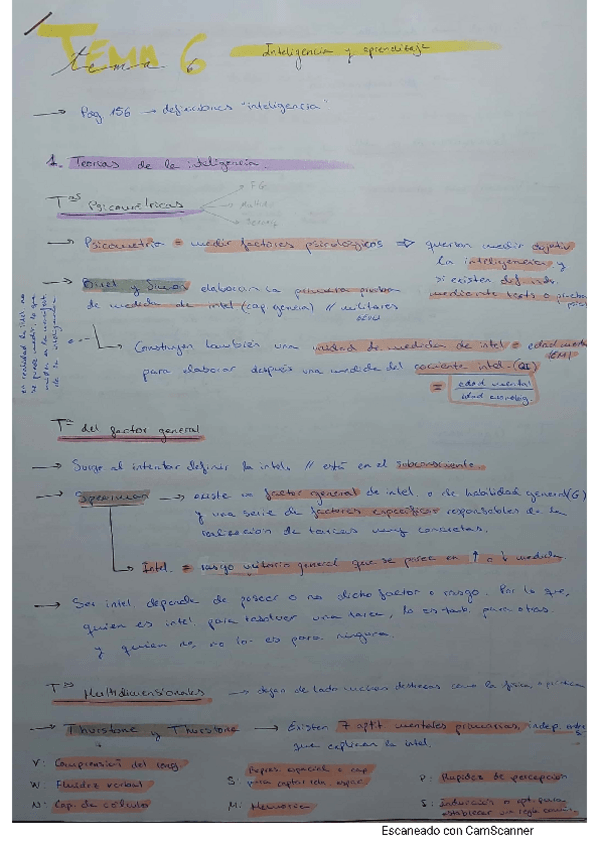 TEMA 6
tema
Inteligencia y aprendizaje
→ Pág 156 → definiciones "inteligencia"
1. Teorías de la inteligencia.
Tas Psicométricas
FG
→ Psicometría = medir factores psicológicos ⇒ querían medir
la inteligencia y
si existen
mediante tests o
→ Binet y Simon elaboran la primera prueba
de medida de intel (cap general) // militares
en realidad la intel. no
se puede medir, lo que
de la inteligencia
Construyen también una unidad de medida de intel = edad
(EM)
para elaborar después una medida del cociente intel. (
= edad mental
edad cronolog.
Tª del factor general
→ Surge al intentar definir la intel. // está en el subconsciente.
→ Spearman → existe un factor general de intel. o de habilidad general (G)
y una serie de factores específicos responsables de la
realización de tareas muy concretas.
→ Intel. = rasgo unitario general que se posee en ↑ o ↓ medida
→ Ser intel. depende de poseer o no dicho factor o rasgo. Por lo que,
quien es intel. para resolver una tarea, lo es tamb. para otras
y quien no, no lo es para ninguna.
Tas Multidimensionales → dejan de lado muchas destrezas como la física o práctica
→ Thurstone y Thurstone → Existen 7 aptit mentales primarias, indep.
que explican la intel.
V: Comprensión del leng.
W: Fluidez verbal
N: Cap. de cálculo
S: Repres. espacial o cap
para captar rela. espac.
M: Memoria
P: Rapidez de percepción
I: Inducción o apt. para
establecer una regla
Escaneado con CamScanner